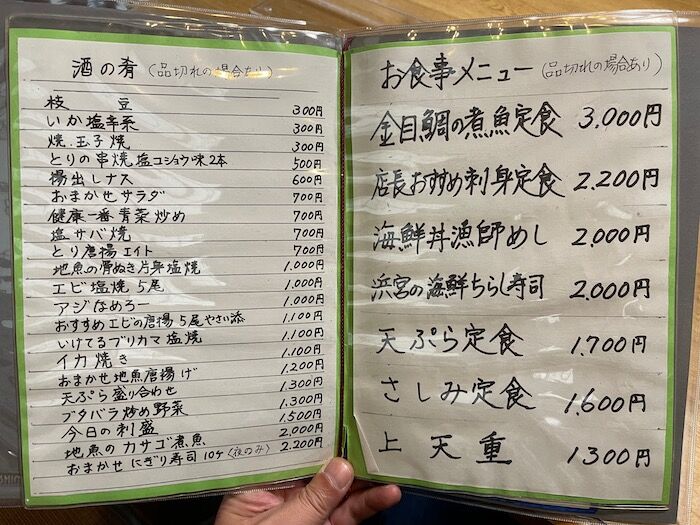 酒の肴 (品切れの場合あり)
枝 豆 300円
いか塩辛 300円
焼.玉子焼 300円
とりの串焼塩コショウ味2本 500円
揚出しナス 600円
おまかせサラダ 700円
健康一番青菜炒め 700円
塩サバ焼 700円
とり唐揚エイト 700円
地魚の骨ぬき片身塩焼 1.000円
エビ塩焼5尾 1.000円
アジなめろー 1.000円
おすすめエビの唐揚5尾やさい添 1.100円
いけてるブリカマ塩焼 1.100円
イカ焼き 1.100円
おまかせ地魚唐揚げ 1.200円
天ぷら盛り合わせ 1.300円
ブタバラ炒め野菜 1.300円
今日の刺盛 1.500円
地魚のカサゴ煮魚 2,000円
おまかせにぎり寿司10ヶ(夜のみ) 2.200円
お食事メニュー (品切れの場合あり)
金目鯛の煮魚定食 3.000円
店長おすすめ刺身定食 2,200円
海鮮丼漁師めし 2,000円
浜宮の海鮮ちらし寿司 2,000円
天ぷら定食 1.700円
さしみ定食 1.600円
上天重 1300円